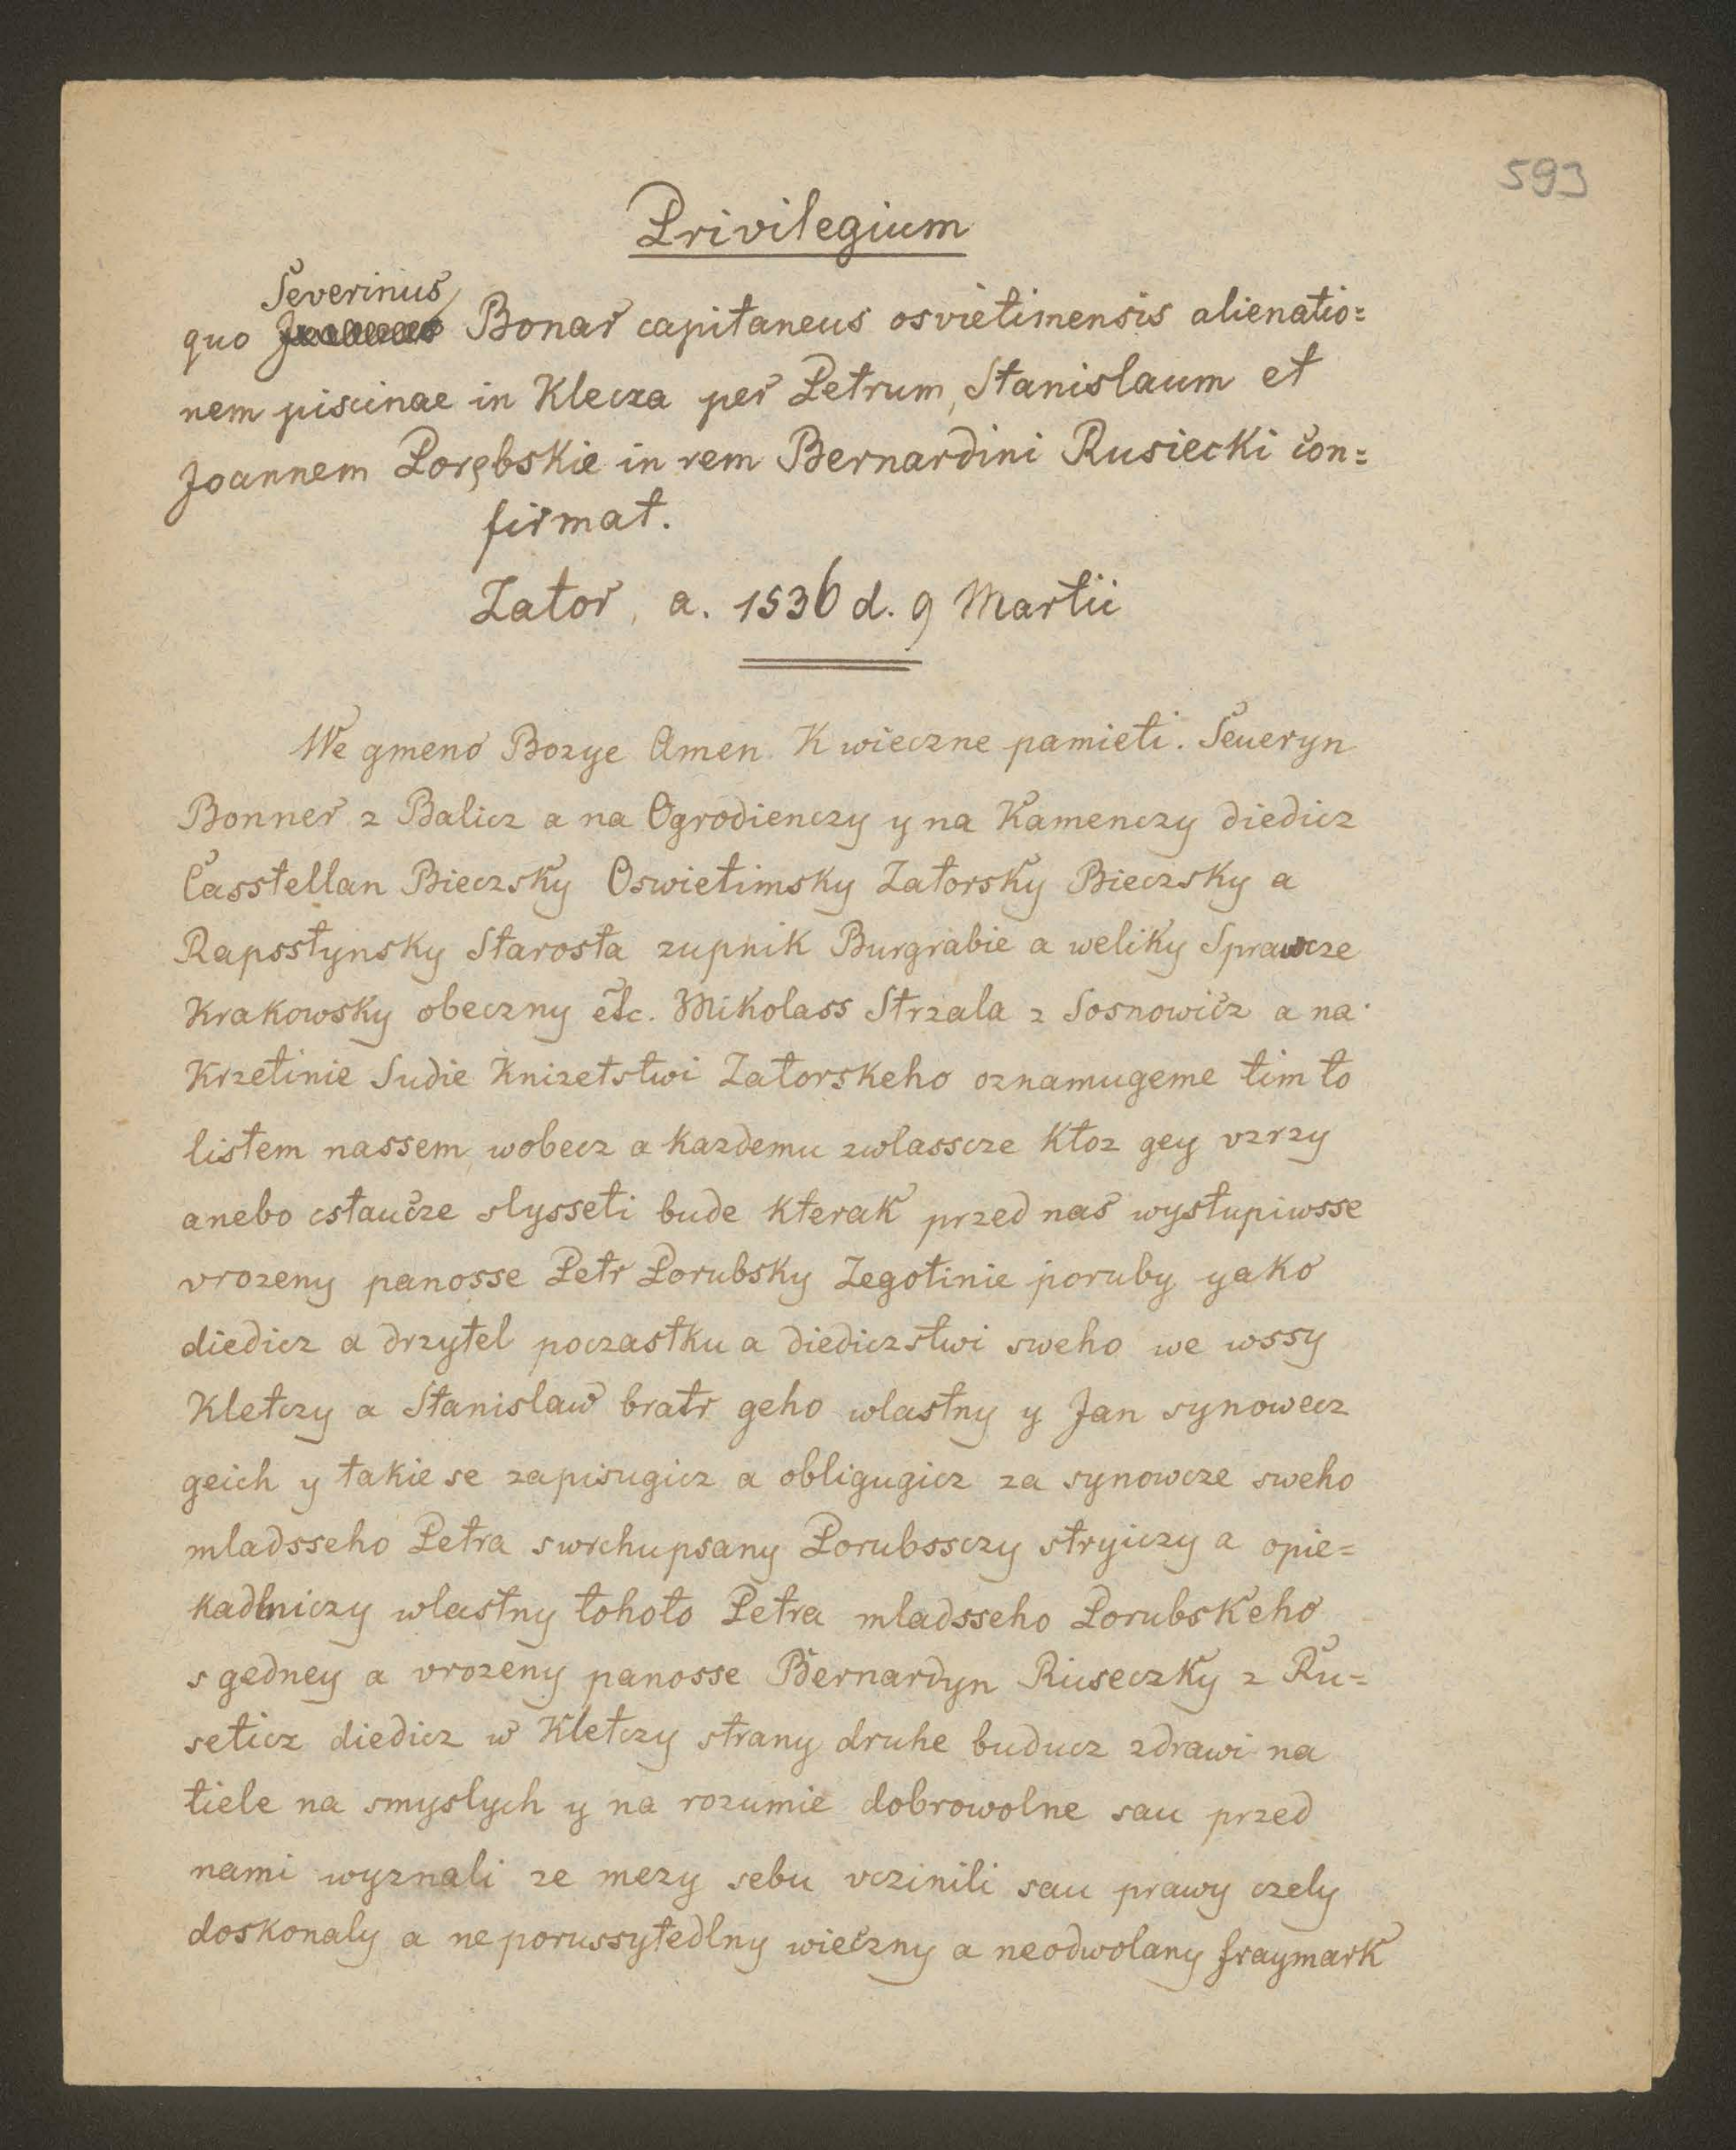 593
Privilegium
Severinus
quo Bonar capitaneus osvietimensis alienatio=
nem piscinae in Klecza per Petrum, Stanislaum et
Joannem Porębskie in rem Bernardini Rusiecki con=
firmat.
Zator, a. 1536 d. 9 Martii
We gmeno Bozye Amen. K wieczne pamieti. Seueryn
Bonner z Balicz a na Ogrodienczy y na Kamenczy diedicz
Casstellan Bieczsky Oswietimsky Zatorsky Bieczsky a
Rapsstynsky Starosta zupnik Burgrabie a weliky Sprawcze
Krakowsky obeczny etc. Mikolass Strzala z Sosnowicz a na
Krzetinie Sudie Knizetstwi Zatorskeho oznamugeme tim to
listem nassem wobecz a kazdemu zwlasscze ktoz gey vzrzy
anebo cstaucze slysseti bude kterak przed nas wystupiwsse
vrozeny panosse Petr Porubsky Zegotinie poruby yako
diedicz a drzytel poczastku a diediczstwi sweho we wssy
Kletczy a Stanislaw bratr geho wlastny y Jan synowecz
geich y takie se zapisugicz a obligugicz za synowcze sweho
mladsseho Petra swrchupsany Porubssczy stryiczy a opie=
kadlniczy wlastny tohoto Petra mladsseho Porubskeho
s gedney a vrozeny panosse Bernardyn Ruseczky z Ru=
seticz diedicz w Kletczy strany druhe buducz zdrawi na
tiele na smyslych y na rozumie dobrowolne sau przed
nami wyznali ze mezy sebu vczinili sau prawy czely
doskonaly a neporussytedlny wieczny a neodwolany fraymark